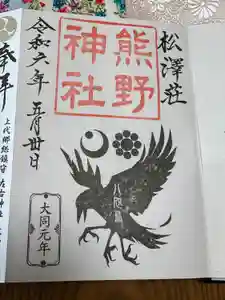 松澤荘
熊野
神社
令和六年五月廿日
八咫烏
大同元年
奉拝
上代郷総鎮守